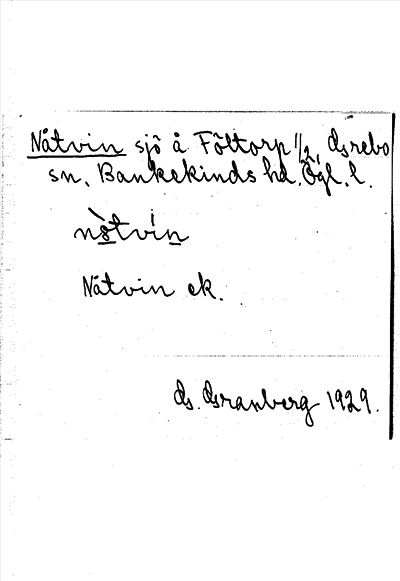 Nåtvin sjö å Föltorp 1/2, Grebo
sn. Bankekinds hd. Ögl. l.
nòtvín
Nåtvin ek.
G. Granberg 1929.